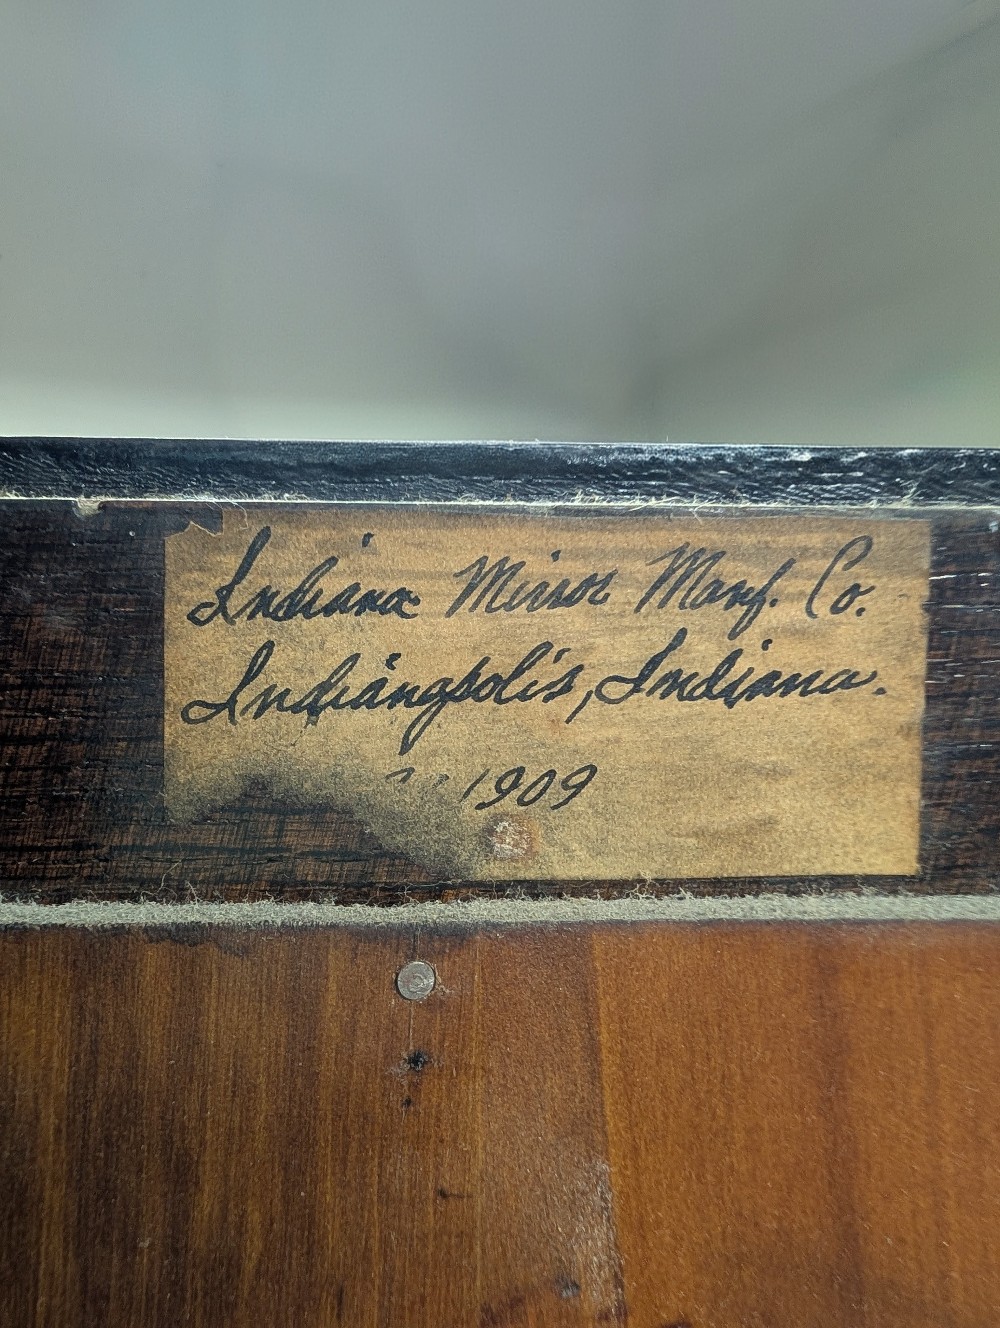 Indiana Mirror Manf. Co.
Indianapolis, Indiana.
1909